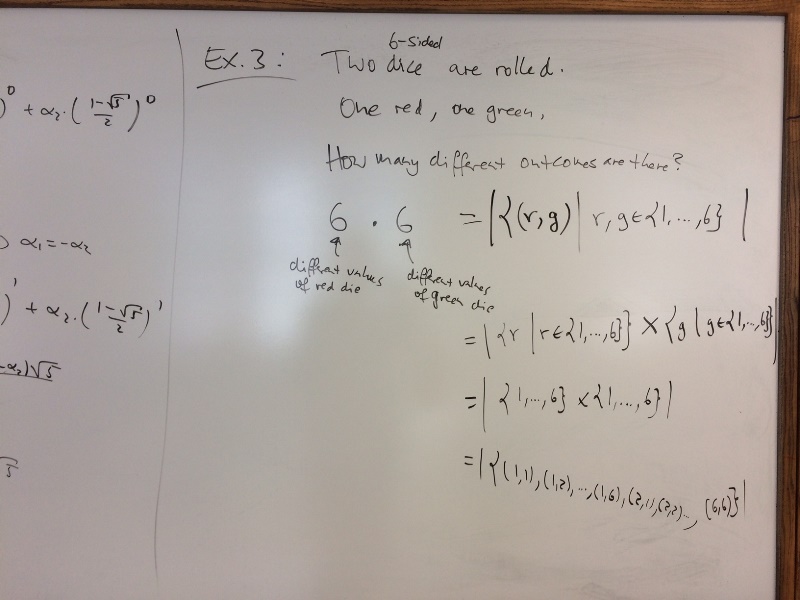 )⁰ + α₂·((1-√5)/2)⁰
α₁ = -α₂
)¹ + α₂·((1-√5)/2)¹
-α₂)√5
√5
Ex. 3: Two 6-sided dice are rolled.
One red, one green,
How many different outcomes are there?
6 · 6 = |{(r,g) | r,g∈{1,...,6}}|
different values of red die
different values of green die
= |{r | r∈{1,...,6}} × {g | g∈{1,...,6}}|
= |{1,...,6} × {1,...,6}|
= |{(1,1),(1,2),...,(1,6),(2,1),(2,2)..., (6,6)}|